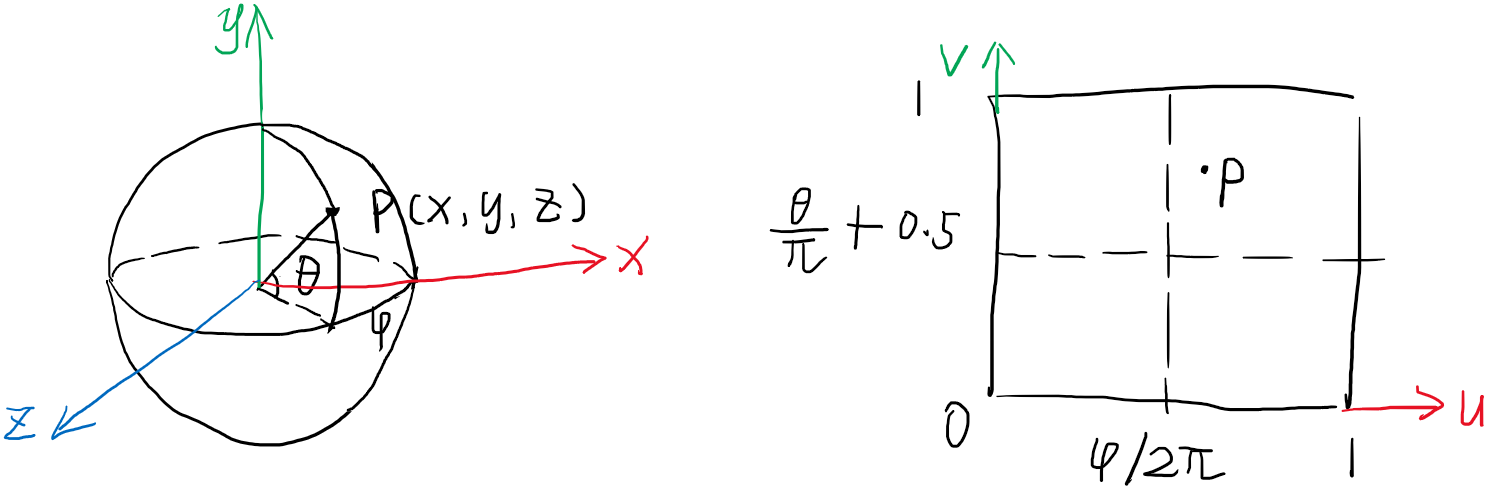 y
P(x, y, z)
θ
x
φ
z
v
1
·P
θ/π + 0.5
0
φ/2π
1
u